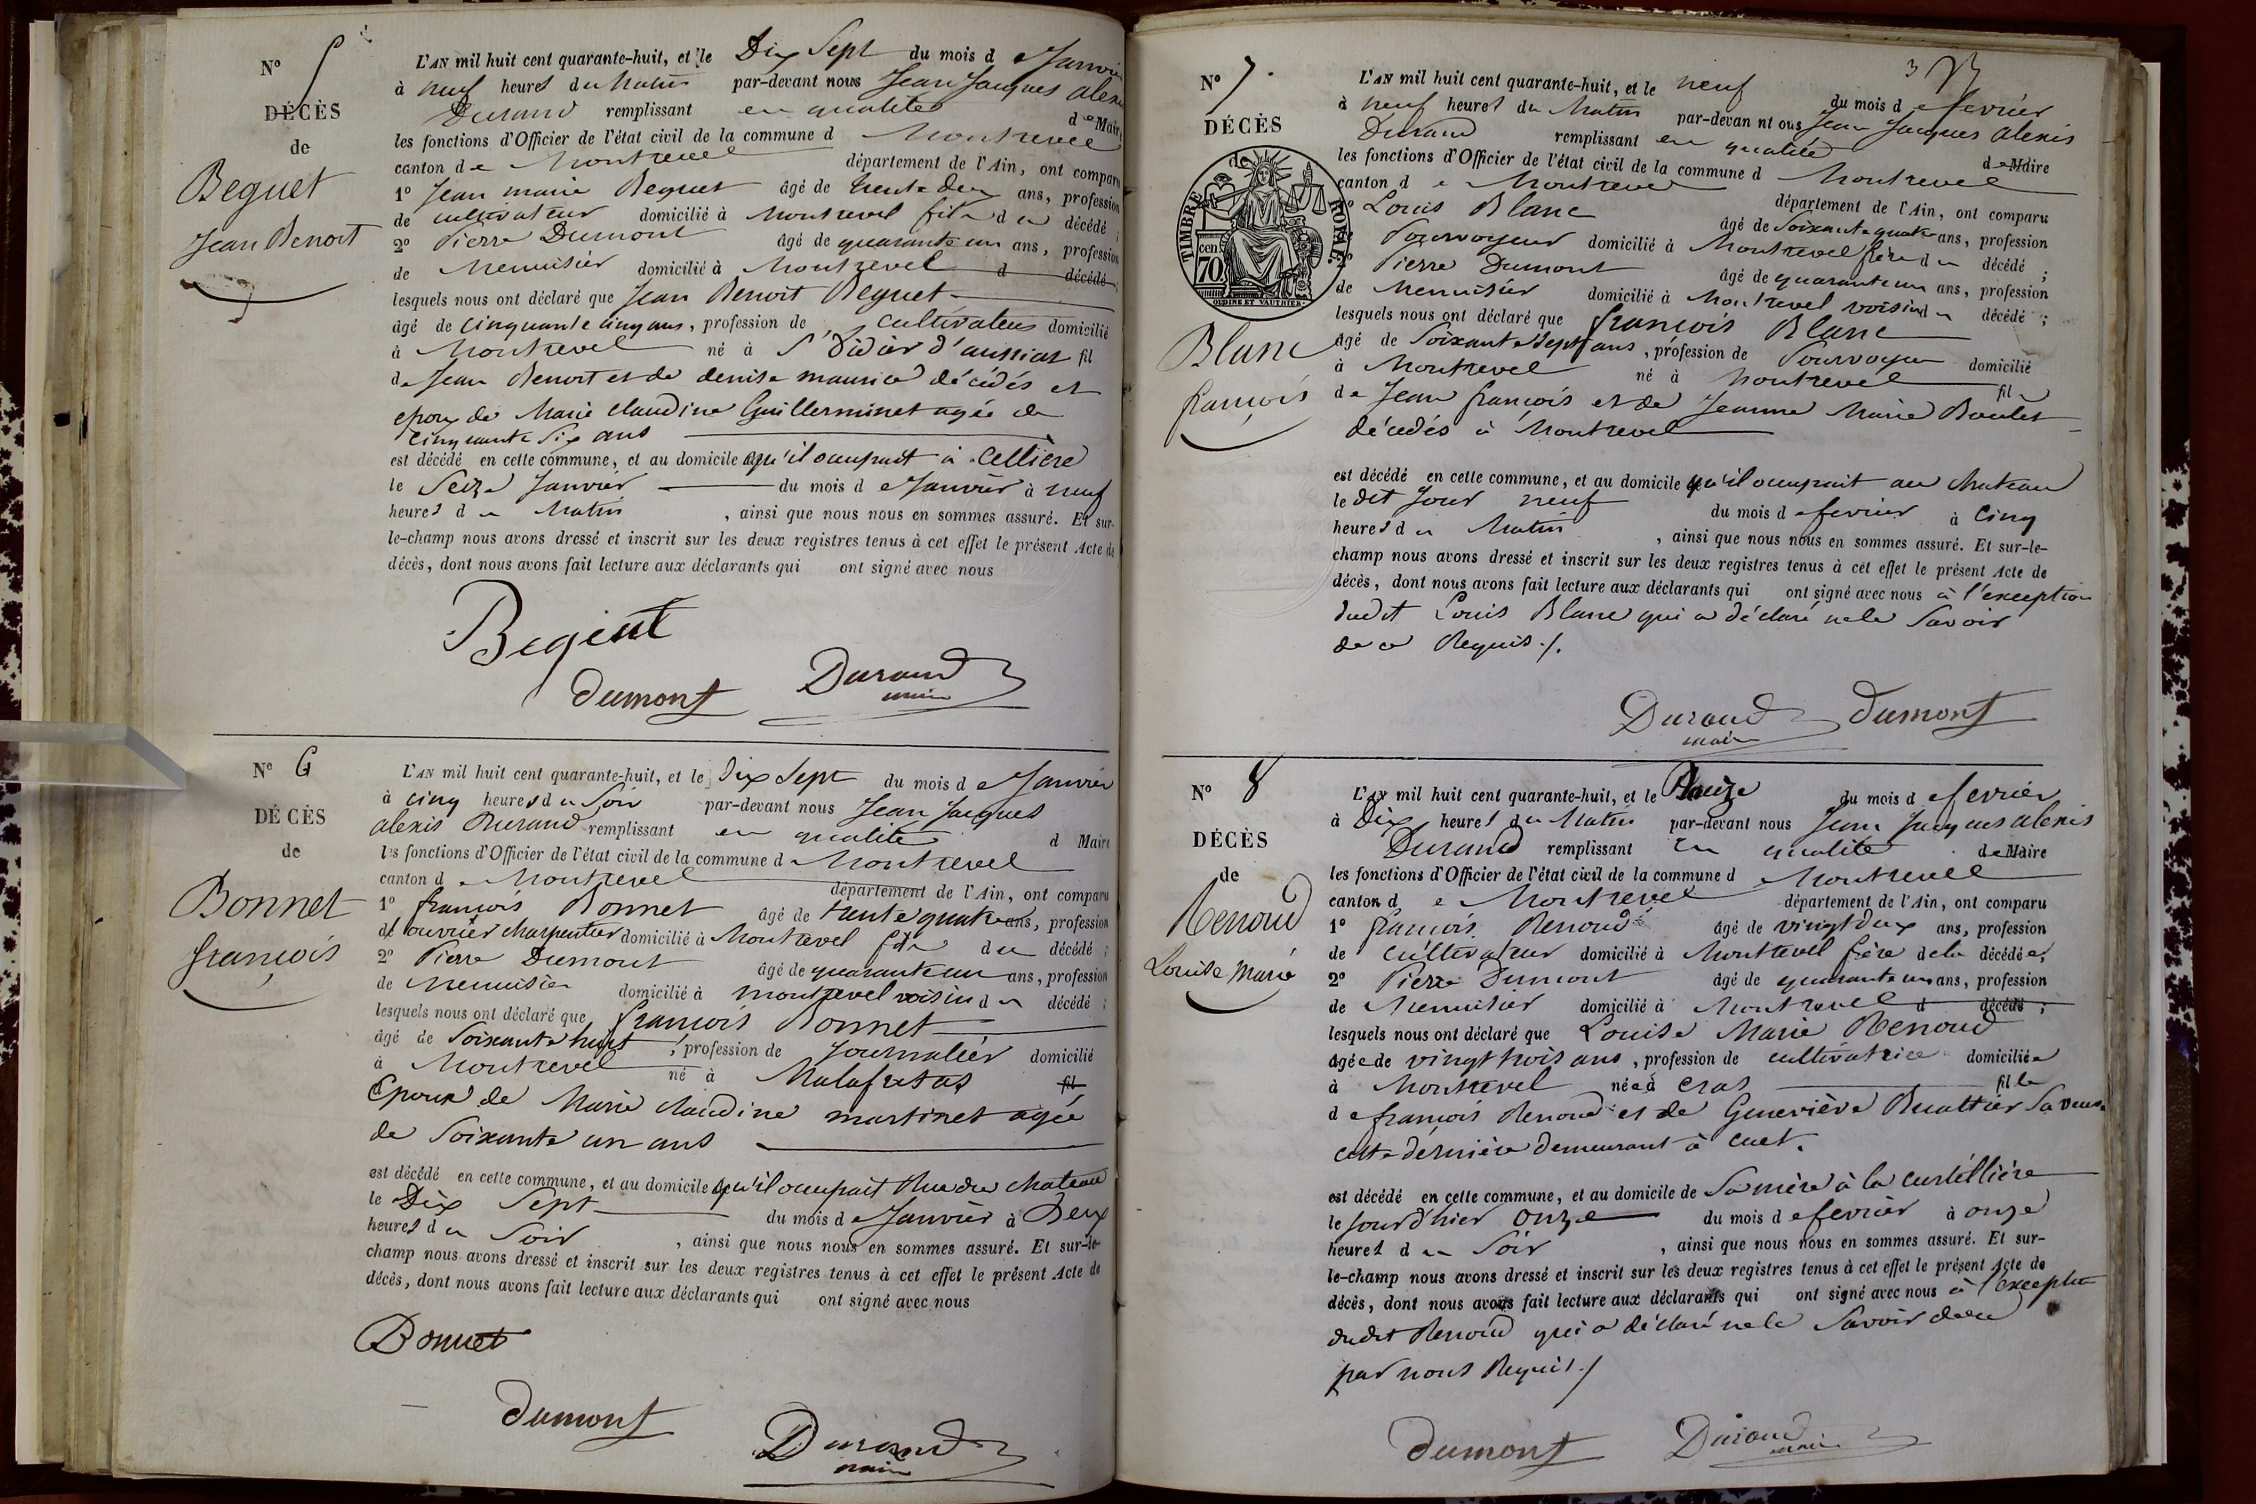 N° 5
DÉCÈS
de
Beguet
Jean Benoit
L'AN mil huit cent quarante-huit, et le Dix Sept du mois de Janvier
à neuf heures du Matin par-devant nous Jean Jacques alexis
Durand remplissant en qualité de Maire
les fonctions d'Officier de l'état civil de la commune d Montrevel
canton de Montrevel département de l'Ain, ont comparu
1° Jean marie Beguet âgé de trente deux ans, profession
de cultivateur domicilié à Montrevel fils du décédé ;
2° Pierre Dumont âgé de quarante un ans, profession
de Menuisier domicilié à Montrevel d décédé ;
lesquels nous ont déclaré que Jean Benoit Beguet
âgé de Cinquante cinq ans, profession de cultivateur domicilié
à Montrevel né à St Didier d'aussiat fil
de Jean Benoit et de denise maurice décédés et
epoux de Marie claudine Guillerminet agée de
Cinquante Six ans
est décédé en cette commune, et au domicile qu'il occupait à Cellière
le Seize Janvier du mois de Janvier à neuf
heures du Matin, ainsi que nous nous en sommes assuré. Et sur-
le-champ nous avons dressé et inscrit sur les deux registres tenus à cet effet le présent Acte de
décès, dont nous avons fait lecture aux déclarants qui ont signé avec nous
Beguet
Dumont Durand
maire
N° 6
DÉCÈS
de
Bonnet
françois
L'AN mil huit cent quarante-huit, et le Dix Sept du mois de Janvier
à cinq heures du Soir par-devant nous Jean Jacques
alexis Durand remplissant en qualité d Maire
les fonctions d'Officier de l'état civil de la commune de Montrevel
canton de Montrevel département de l'Ain, ont comparu
1° françois Bonnet âgé de trente quatre ans, profession
d'ouvrier charpentier domicilié à Montrevel fils du décédé ;
2° Pierre Dumont âgé de quarante un ans, profession
de Menuisier domicilié à montrevel voisin du décédé ;
lesquels nous ont déclaré que françois Bonnet
âgé de Soixante huit, profession de Journalier domicilié
à Montrevel né à Malafretas fil
Epoux de Marie claudine martinet agée
de Soixante un ans
est décédé en cette commune, et au domicile qu'il occupait Rue du chateau
le Dix Sept du mois de Janvier à Deux
heures du Soir, ainsi que nous nous en sommes assuré. Et sur-le-
champ nous avons dressé et inscrit sur les deux registres tenus à cet effet le présent Acte de
décès, dont nous avons fait lecture aux déclarants qui ont signé avec nous
Bonnet
Dumont
Durand
maire
3
N° 7.
DÉCÈS
de
TIMBRE ROYAL.
70 cen
ORDINE ET VAUTHIER.
Blanc
françois
L'AN mil huit cent quarante-huit, et le neuf du mois de fevrier
à neuf heures du Matin par-devan nt ous Jean Jacques Alexis
Durand remplissant en qualité de Maire
les fonctions d'Officier de l'état civil de la commune d Montrevel
canton de Montrevel département de l'Ain, ont comparu
1° Louis Blanc âgé de Soixante quatre ans, profession
Pourvoyeur domicilié à Montrevel frère du décédé ;
2° Pierre Dumont âgé de quarante un ans, profession
de Menuisier domicilié à Montrevel voisin du décédé ;
lesquels nous ont déclaré que françois Blanc
âgé de Soixante Sept ans, profession de Pourvoyeur domicilié
à Montrevel né à Montrevel fils
de Jean françois et de Jeanne Marie Boulet
décédés à Montrevel
est décédé en cette commune, et au domicile qu'il occupait au chateau
le dit Jour neuf du mois de fevrier à Cinq
heures du Matin, ainsi que nous nous en sommes assuré. Et sur-le-
champ nous avons dressé et inscrit sur les deux registres tenus à cet effet le présent Acte de
décès, dont nous avons fait lecture aux déclarants qui ont signé avec nous à l'exception
dudit Louis Blanc qui a déclaré ne le Savoir
de ce Requis ./.
Durand Dumont
maire
N° 8
DÉCÈS
de
Renoud
Louise Marie
L'AN mil huit cent quarante-huit, et le du mois de fevrier
à Dix heures du Matin par-devant nous Jean Jacques alexis
Durand remplissant en qualité de Maire
les fonctions d'Officier de l'état civil de la commune de Montrevel
canton de Montrevel département de l'Ain, ont comparu
1° françois Renoud âgé de vingt deux ans, profession
de cultivateur domicilié à Montrevel frère de la décédée,
2° Pierre Dumont âgé de quarante un ans, profession
de Menuisier domicilié à Montrevel d décédé ;
lesquels nous ont déclaré que Louise Marie Renoud
âgée de vingt trois ans, profession de cultivatrice domiciliée
à Montrevel née à Cras fille
de françois Renoud et de Geneviève Buattier Sa veuve
cette dernière demeurant à Cuet.
est décédé en cette commune, et au domicile de Sa mère à la curtillière
le Jour d'hier onze du mois de fevrier à onze
heures du Soir, ainsi que nous nous en sommes assuré. Et sur-
le-champ nous avons dressé et inscrit sur les deux registres tenus à cet effet le présent Acte de
décès, dont nous avons fait lecture aux déclarants qui ont signé avec nous à l'exception
dudit Renoud qui a déclaré ne le Savoir de ce
par nous Requis ./
Dumont Durand
maire